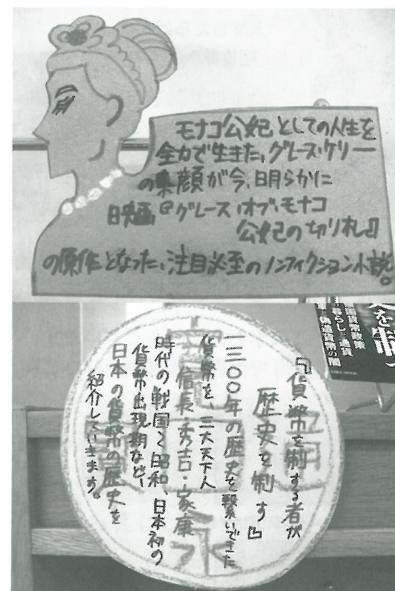 モナコ公妃としての人生を
全力で生きた、グレース・ケリー
の素顔が今、明らかに
映画『グレース・オブ・モナコ
公妃の切り札』
の原作となった、注目必至のノンフィクション小説。
『貨幣を制する者が
歴史を制す』
一三〇〇年の歴史を繋いできた
貨幣を、三大天下人
信長・秀吉・家康
時代の戦国〜昭和、日本初の
貨幣出現期など、
日本の貨幣の歴史を
紹介していきます。
貨幣政策
暮らしと通貨
偽造貨幣の闇